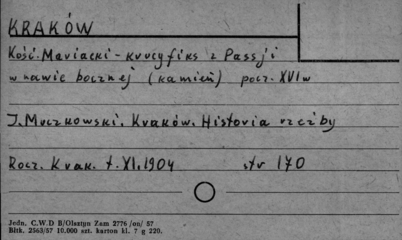 KRAKÓW
Kość. Mariacki - krucyfiks z Passji
w nawie bocznej (kamień) pocz. XVI w
J. Muczkowski. Kraków. Historia rzeźby
Rocz. Krak. t. XI. 1904 str 170
Jedn. C.W.D B/Olsztyn Zam 2776 /on/ 57
Błtk. 2563/57 10.000 szt. karton kl. 7 g 220.